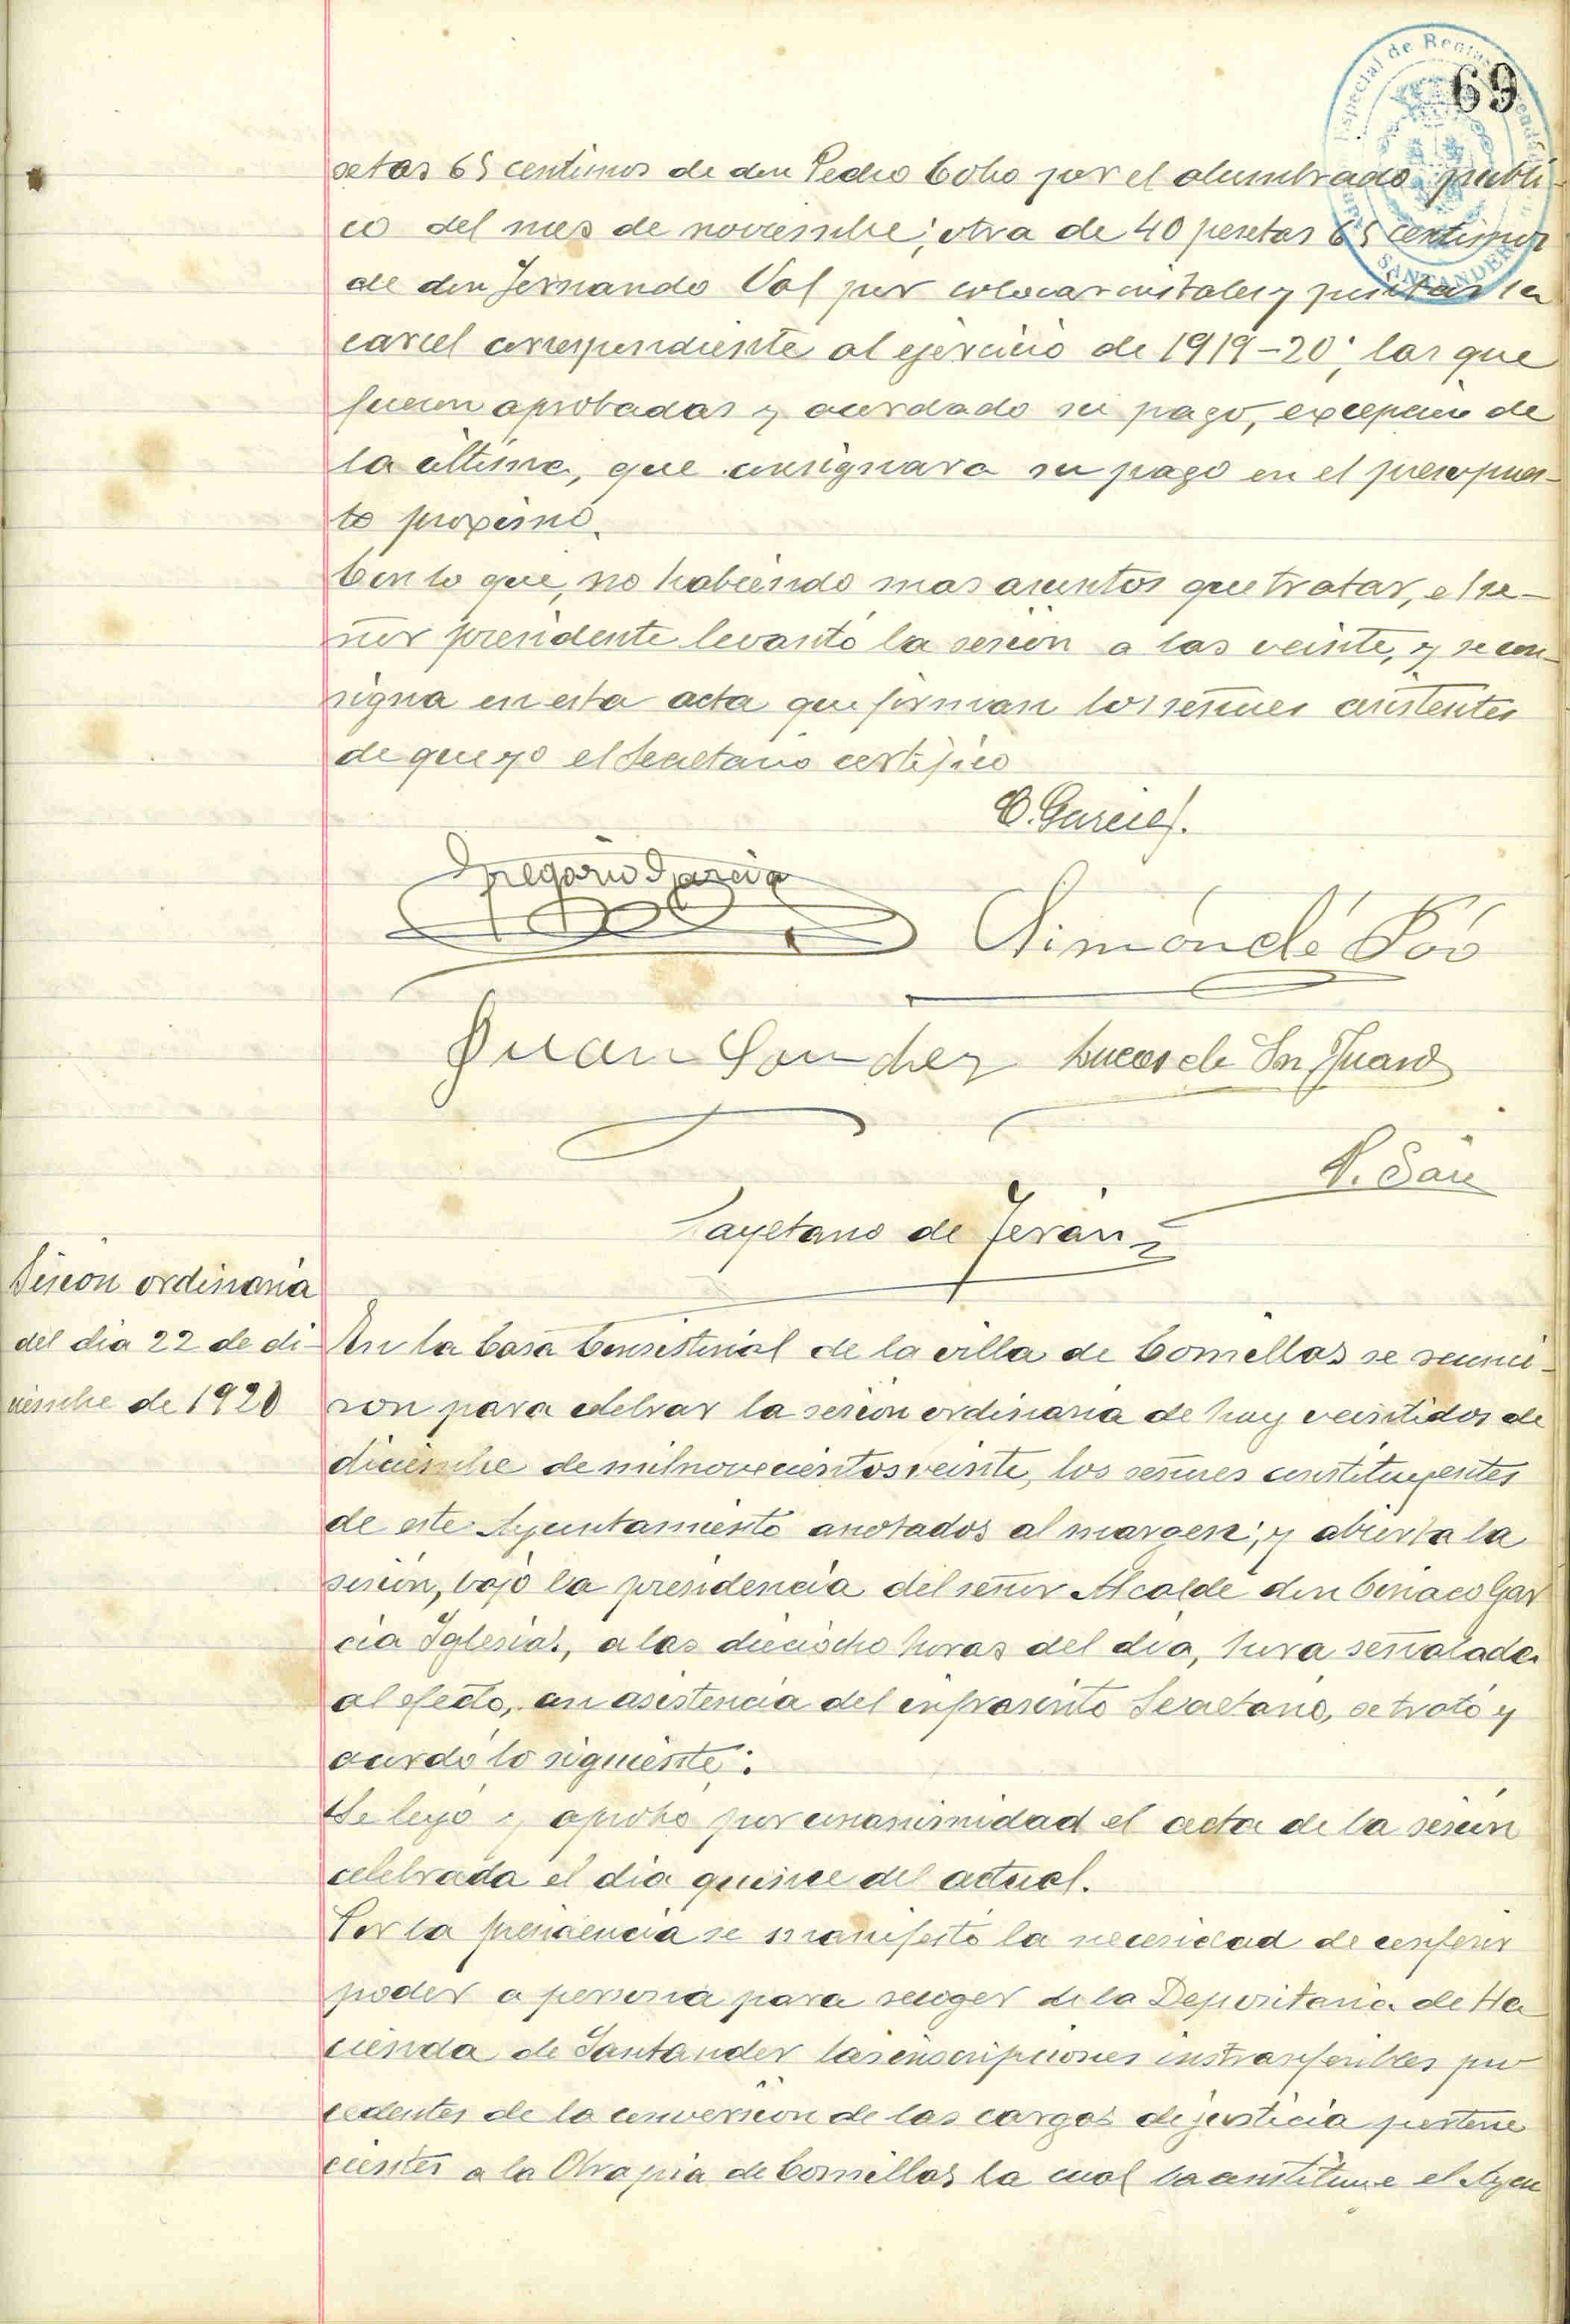 69
Especial de Rentas
SANTANDER
setas 65 centimos de don Pedro Cobo por el alumbrado publi-
co del mes de noviembre; otra de 40 pesetas 65 centimos
de don Fernando Val por colocar cristales y pintar la
carcel correspondiente al ejercicio de 1919-20; las que
fueron aprobadas y acordado su pago, excepcion de
la última, que consignara su pago en el presupues-
to proximo.
Con lo que, no habiendo mas asuntos que tratar, el se-
ñor presidente levantó la sesión a las veinte, y se con-
signa en esta acta que firman los señores asistentes
de que yo el Secretario certifico
C. Garcia.
Gregorio Garcia
Simón de Póo
Juan Sanchez Lucas de Sn Juan
Cayetano de Terán
Sesión ordinaria
del dia 22 de di-
ciembre de 1920
En la Casa Consistorial de la villa de Comillas se reunie-
ron para celebrar la sesion ordinaria de hoy veintidos de
diciembre de mil novecientos veinte, los señores constituyentes
de este Ayuntamiento anotados al margen; y abierta la
sesión, bajo la presidencia del señor Alcalde don Ciriaco Gar
cia Iglesias, a las dieciocho horas del dia, hora señalada
al efecto, con asistencia del infrascrito Secretario, se trató y
acordó lo siguiente:
Se leyó y aprobó por unanimidad el acta de la sesión
celebrada el dia quince del actual.
Por la presidencia se manifestó la necesidad de conferir
poder a persona para recoger de la Depositaria de Ha
cienda de Santander las inscripciones intransferibles pro
cedentes de la conversión de las cargas de justicia pertene
cientes a la Obra pia de Comillas la cual la constituye el Ayun